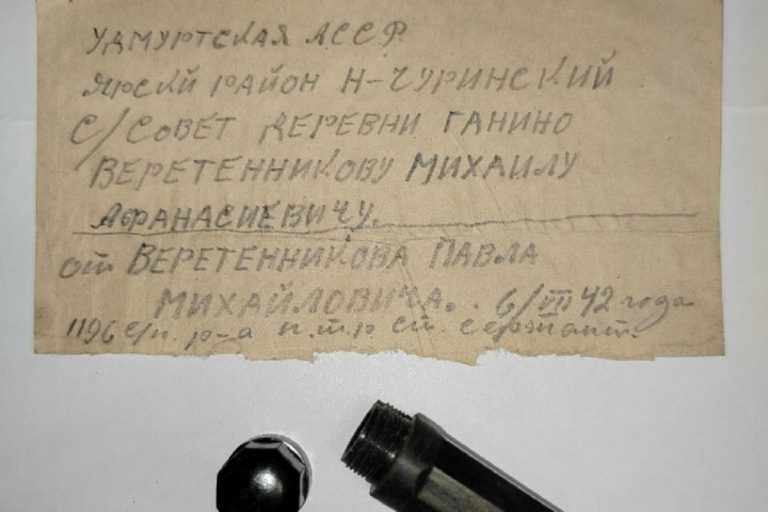 УДМУРТСКАЯ АССР
ЯРСКЙ РАЙОН Н-ЧУРИНСКИЙ
С/СОВЕТ ДЕРЕВНИ ГАНИНО
ВЕРЕТЕННИКОВУ МИХАИЛУ
АФАНАСИЕВИЧУ.
от ВЕРЕТЕННИКОВА ПАВЛА
МИХАЙЛОВИЧА. . 6/VII 42 года
1196 с/п. р-а п.т.р ст. сержант.